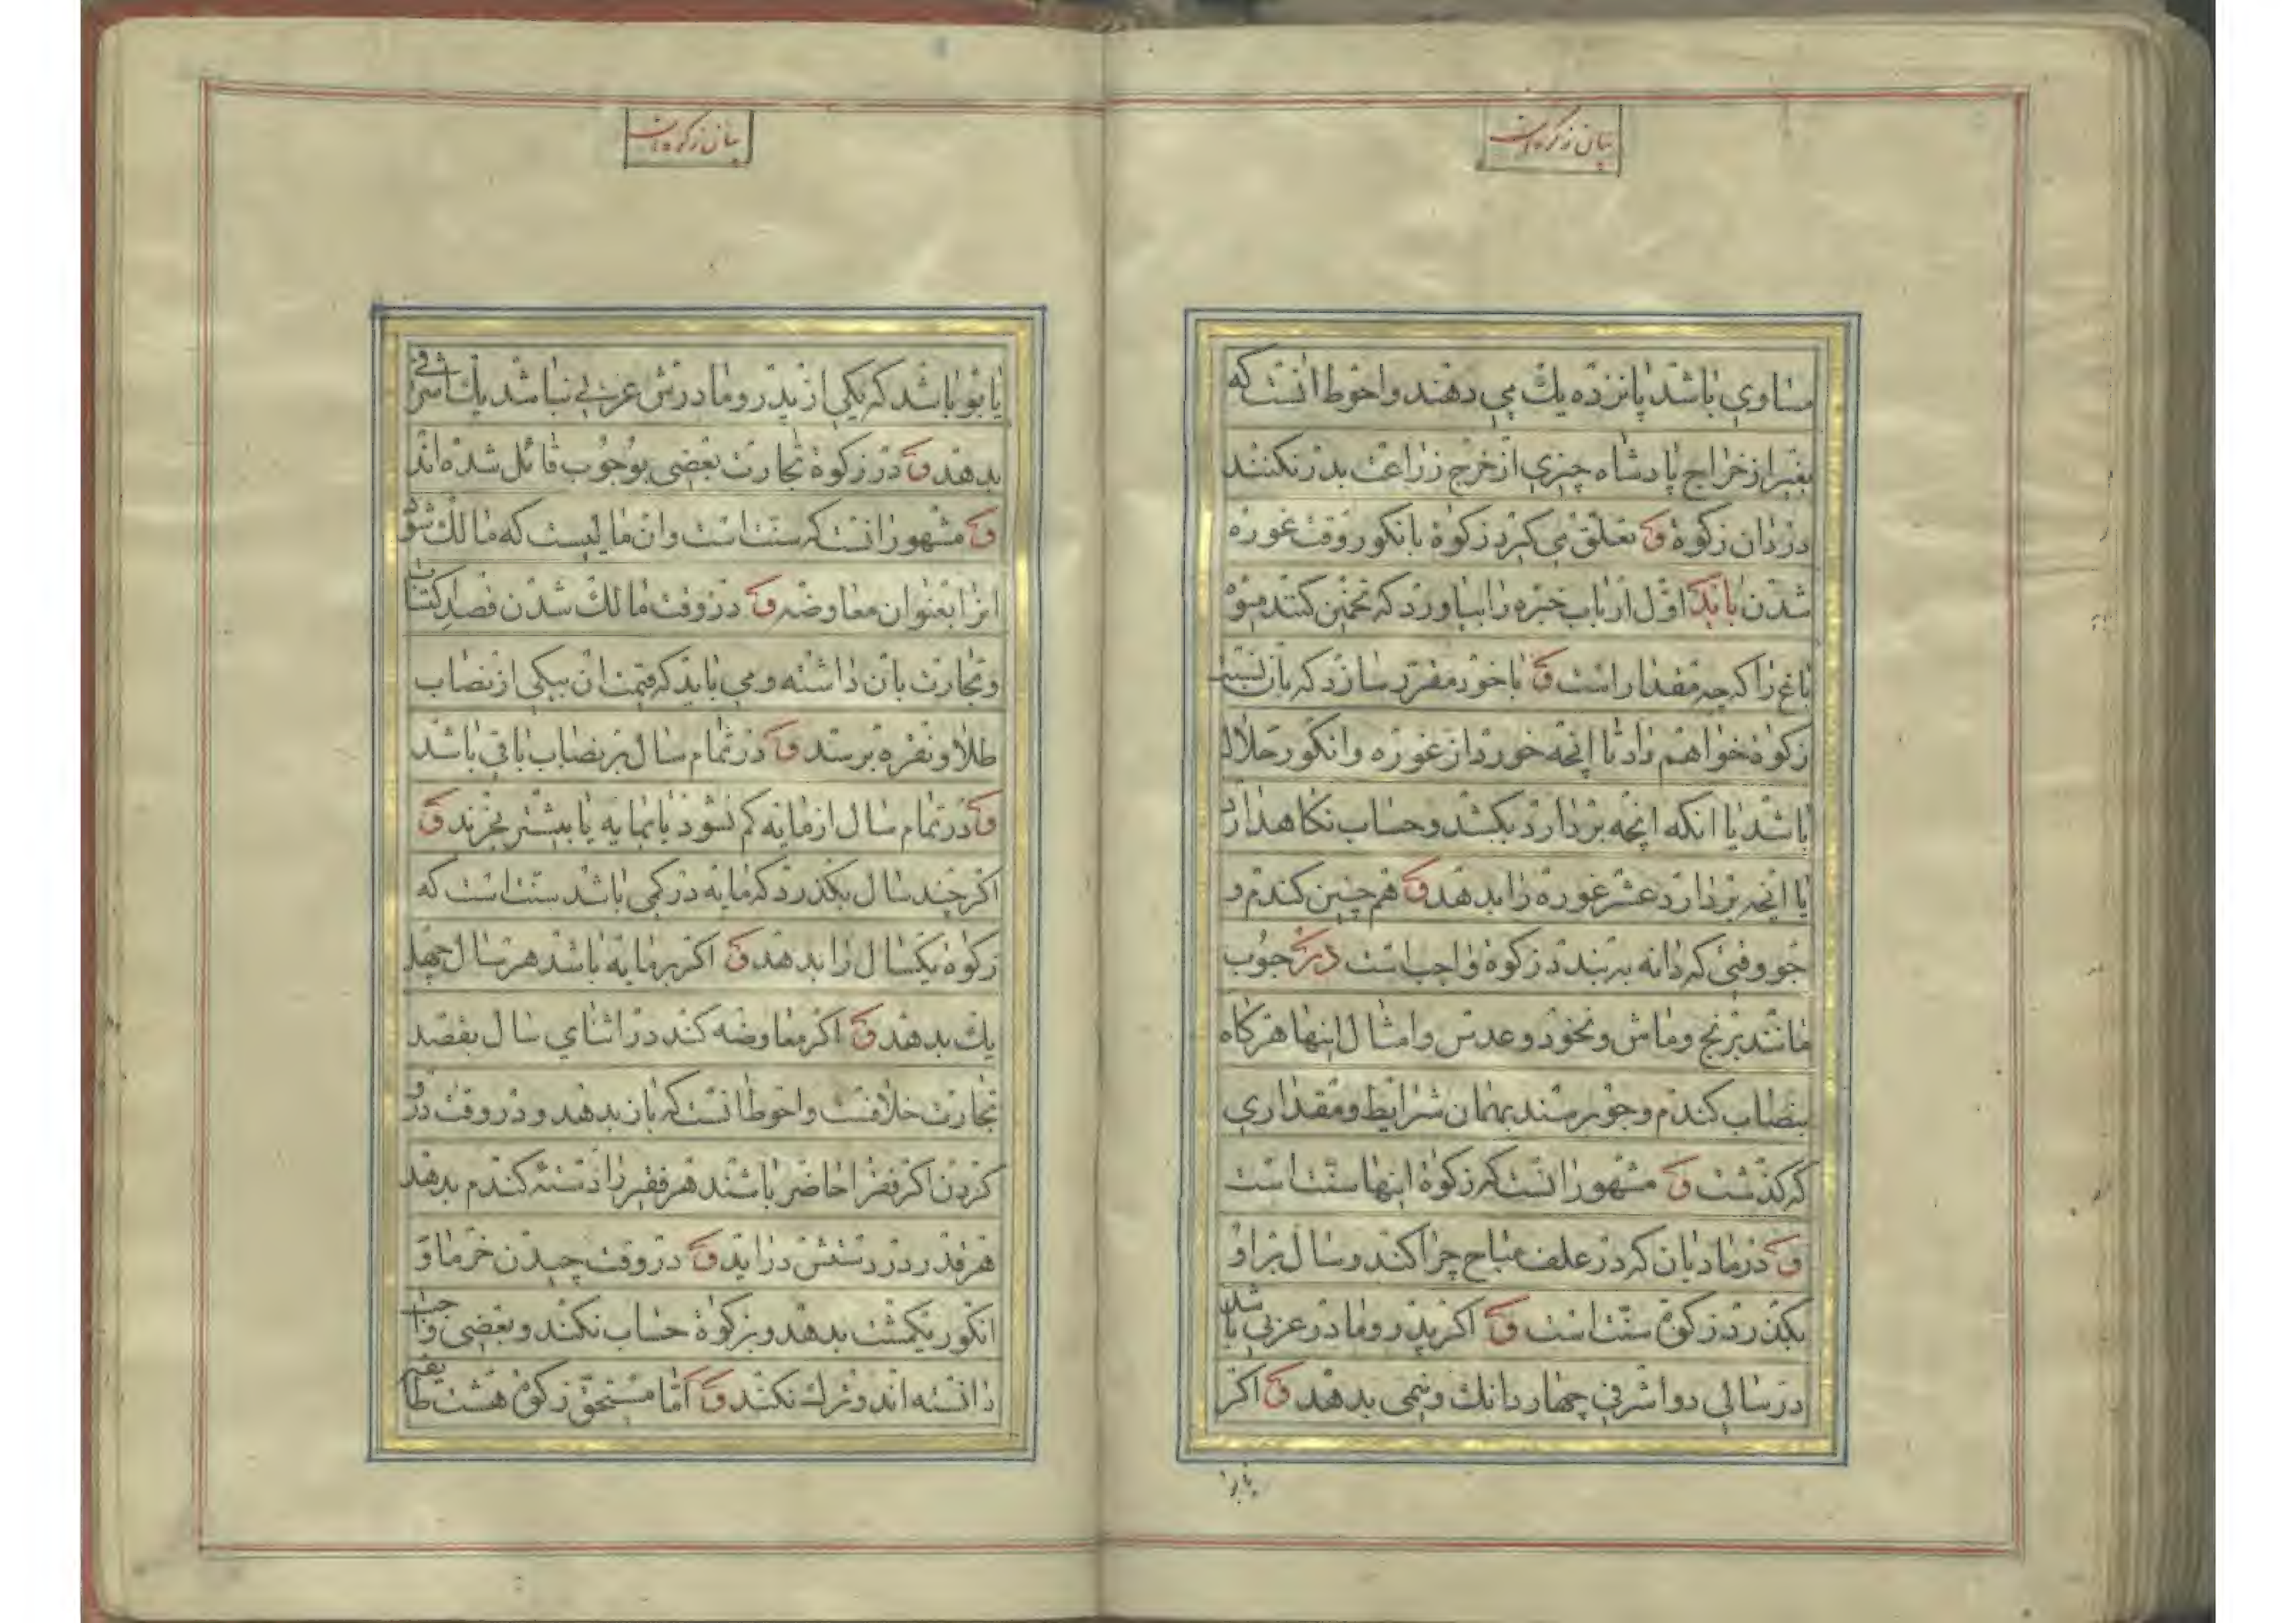 بیان زکوة است
مساوی باشد پانزده یك می دهند واحوط انست که
بغیر از خراج پادشاه چیزی از خرج زراعت بدر نکنند
در دادن زکوة و تعلق می کیرد زکوة بانکور وقت غوره
شدن باید اول ارباب خبره را بیاورد که تخمین کنند میوه
باغ را که چه مقدار است و با خود مقرر سازد که بآن نسبت
زکوة خواهم داد تا انچه خورد از غوره وانکور حلال
باشد یا انکه انچه بردارد بکشد وحساب نکاهدارد
یا انچه بردارد عشر غوره را بدهد و هم چنین کندم و
جو وقتی که دانه به بندد زکوة واجب است در حبوب
مانند برنج وماش ونخود وعدس وامثال اینها هرکاه
بنصاب کندم وجو برسند بهمان شرایط ومقداری
که کذشت و مشهور انست که زکوة اینها سنت است
و در مادیان که در علف مباح چرا کند وسال بر او
بکذرد زکوة سنت است و اکر پدر ومادر عربی باشد
در سالی دو اشرفی چهار دانك ونیمی بدهد و اکر
یابو
بیان زکوة است
یابو باشد که یکی از پدر ومادرش عربی نباشد یك اشرفی
بدهد و در زکوة تجارت بعضی بوجوب قائل شده اند
و مشهور انست که سنت است وان مالیست که مالك شود
انرا بعنوان معاوضه و در وقت مالك شدن قصد اکتساب
وتجارت بآن داشته ومی باید که قیمت ان بیکی از نصاب
طلا ونقره برسد و در تمام سال بر نصاب باقی باشد
و در تمام سال از مایه کم نشود یا بمایه یا بیشتر بخرند و
اکر چند سال بکذرد که مایه در کمی باشد سنت است که
زکوة یکسال را بدهد و اکر بر مایه باشد هر سال چهل
یك بدهد و اکر معاوضه کند در اثنای سال بقصد
تجارت خلافست واحوط انست که بآن بدهد و در وقت درو
کردن اکر فقرا حاضر باشند هر فقیر را دسته کندم بدهد
هر قدر در دستش در اید و در وقت چیدن خرما و
انکور یکمشت بدهد وبزکوة حساب نکند وبعضی واجب
دانسته اند وترك نکند و اما مستحق زکوة هشت طایفه